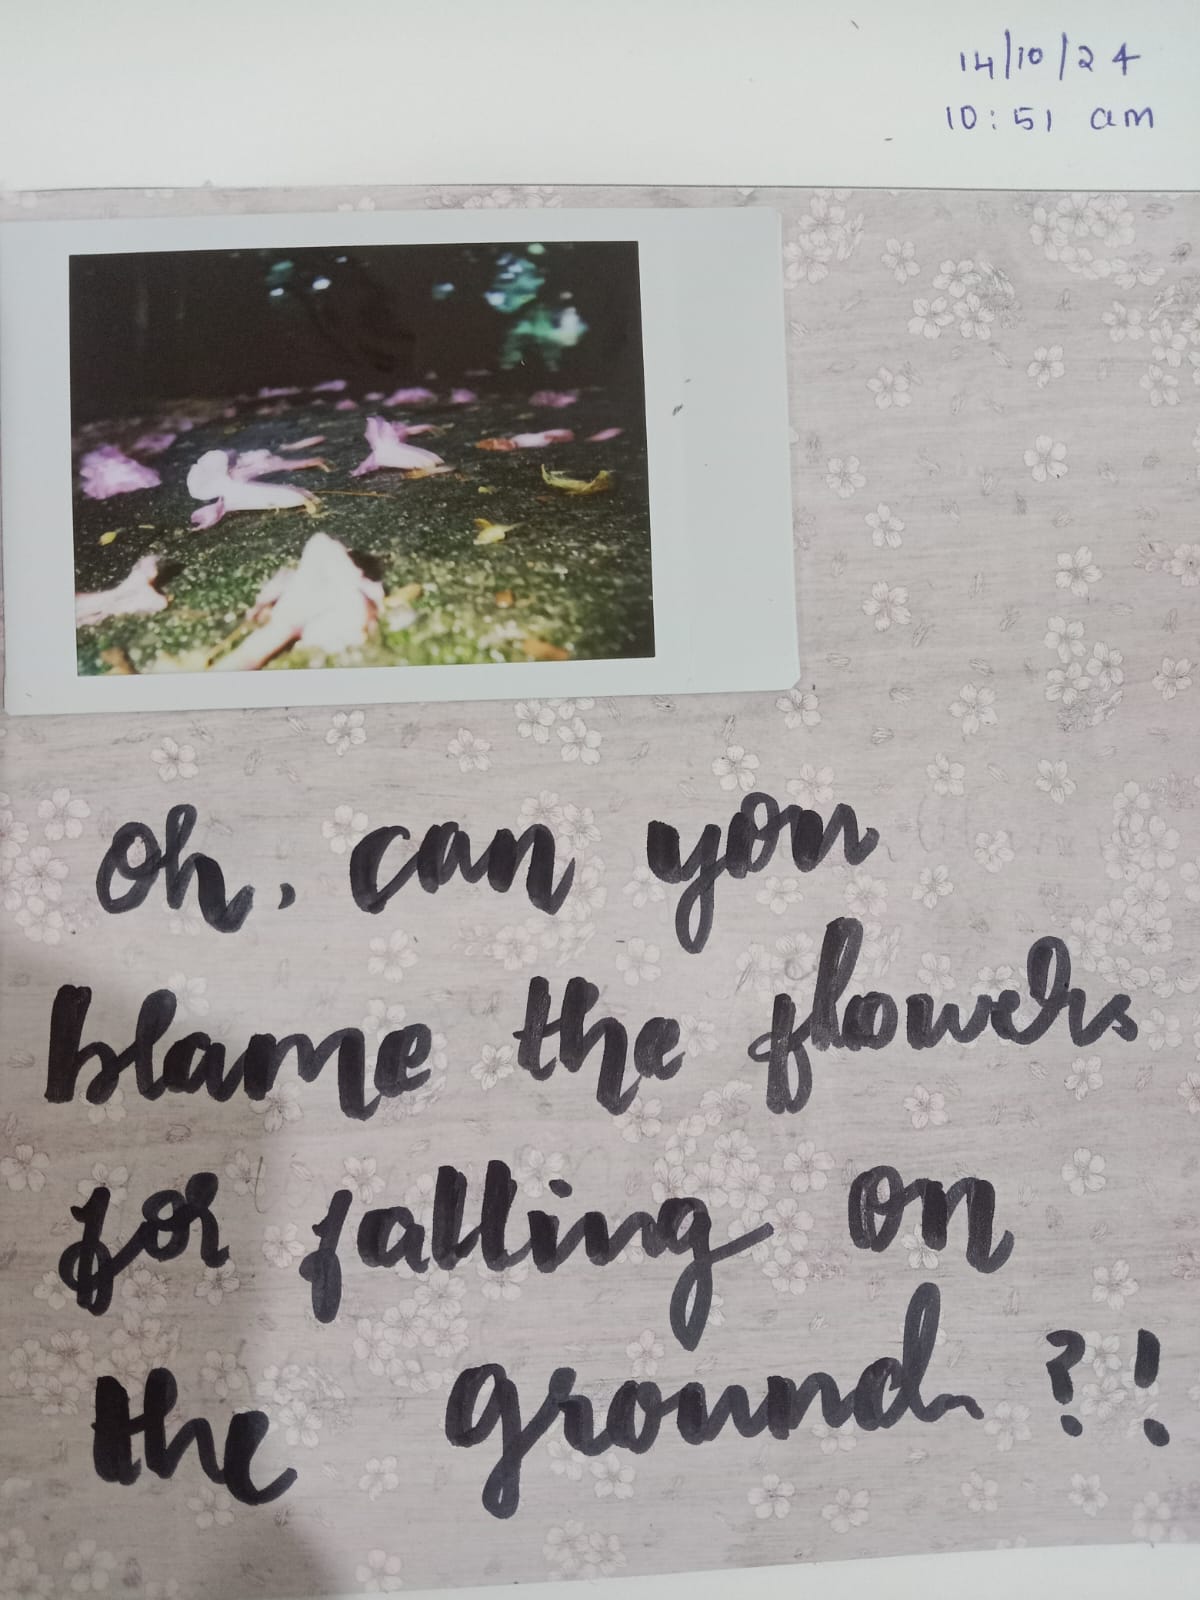 14/10/24
10:51 am
Oh, can you
blame the flowers
for falling on
the ground?!